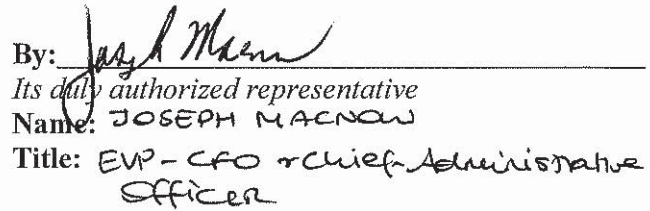 By: Joseph Macnow
Its duly authorized representative
Name: JOSEPH MACNOW
Title: EVP - CFO + Chief Administrative
Officer